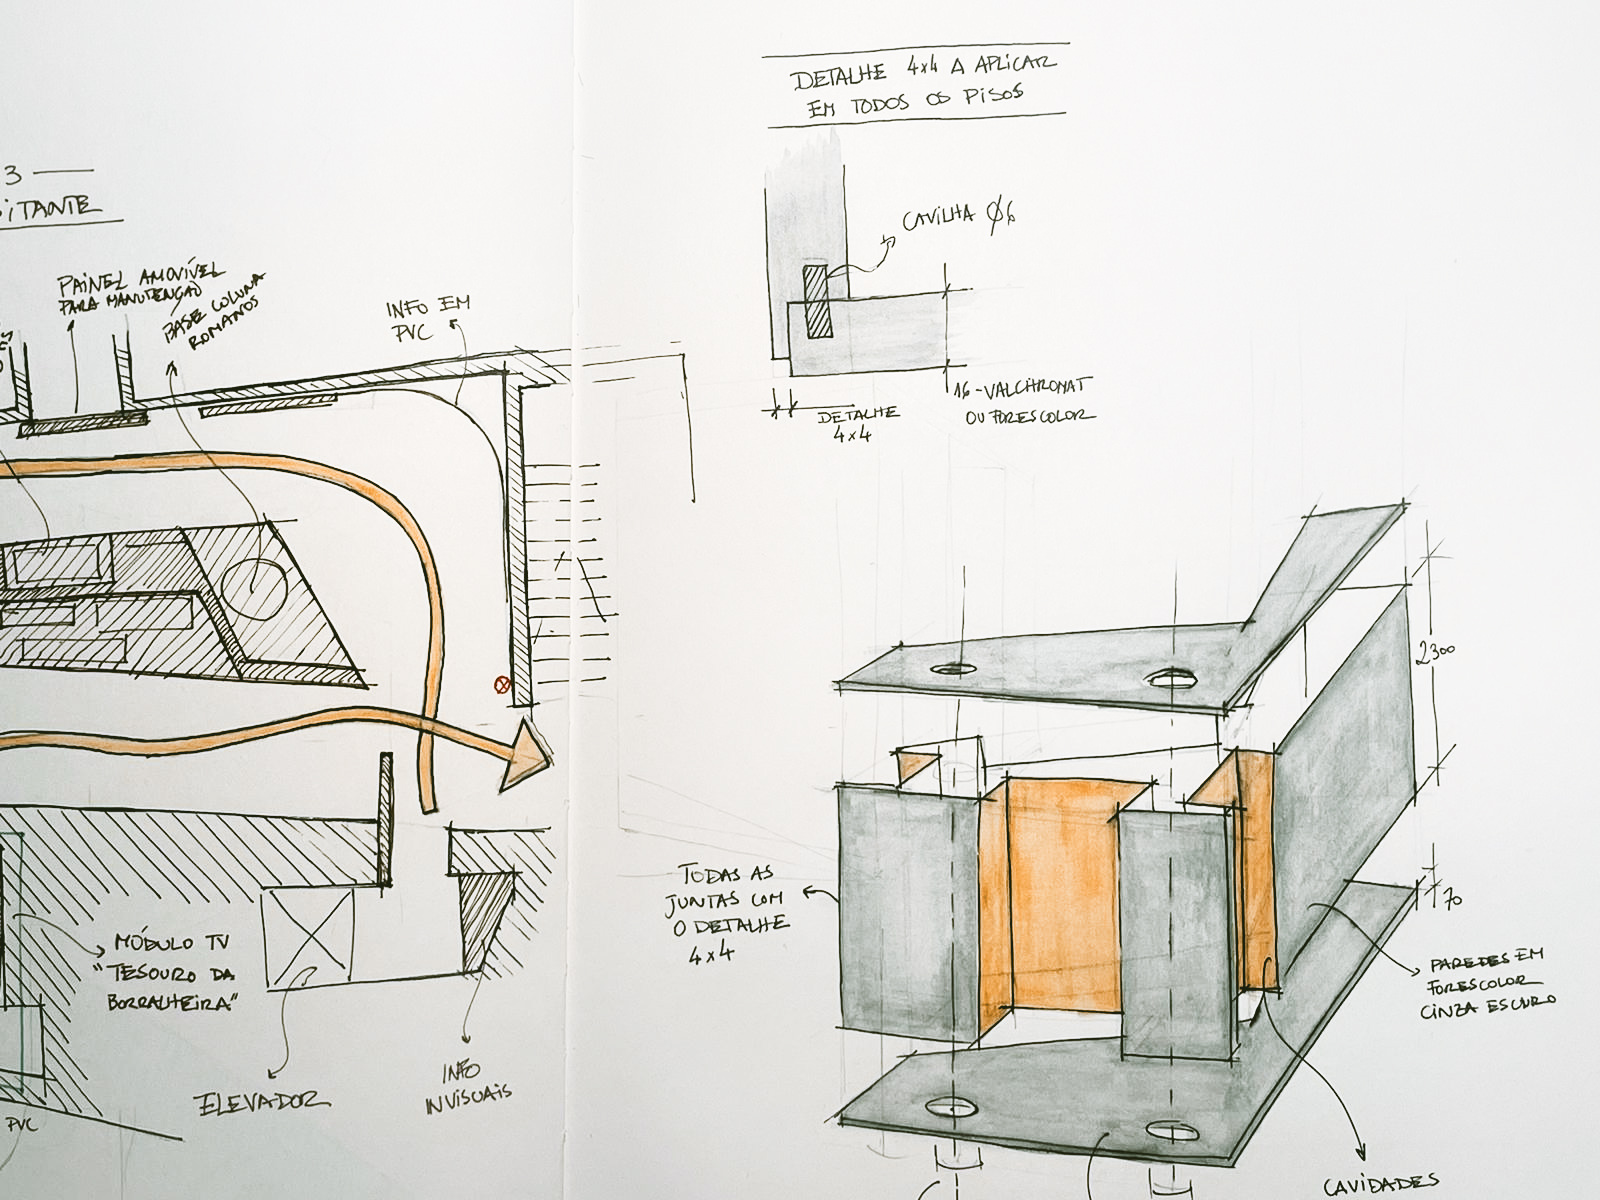 3
PAINEL AMOVÍVEL
PARA MANUTENÇÃO
BASE COLUNA
ROMANOS
INFO EM
PVC
MÓDULO TV
"TESOURO DA
BORRALHEIRA"
ELEVADOR
INFO
INVISUAIS
PVC
DETALHE 4x4 A APLICAR
EM TODOS OS PISOS
CAVILHA Ø6
16-VALCHROMAT
OU FORESCOLOR
DETALHE
4x4
2300
70
TODAS AS
JUNTAS COM
O DETALHE
4x4
PAREDES EM
FORESCOLOR
CINZA ESCURO
CAVIDADES